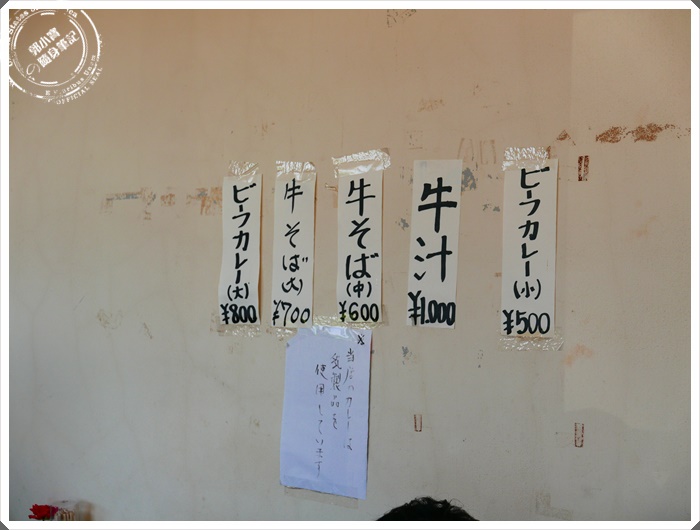 ビーフカレー(小)
¥500
牛汁
¥1,000
牛そば(中)
¥600
牛そば(大)
¥700
ビーフカレー(大)
¥800
当店のカレーは
乳製品を
使用しています
郭小寶
の隨身筆記
OFFICIAL SEAL